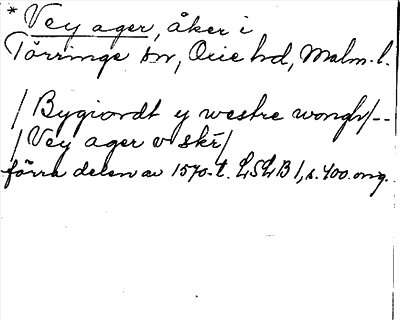 * Vey ager, åker i
Törringe sn, Oxie hd, Malm. l.
/ Bygiordt y westre wongh /--
/ Vey ager v skr /
förra delen av 1570-t. LSLB 1, s. 400. orig.